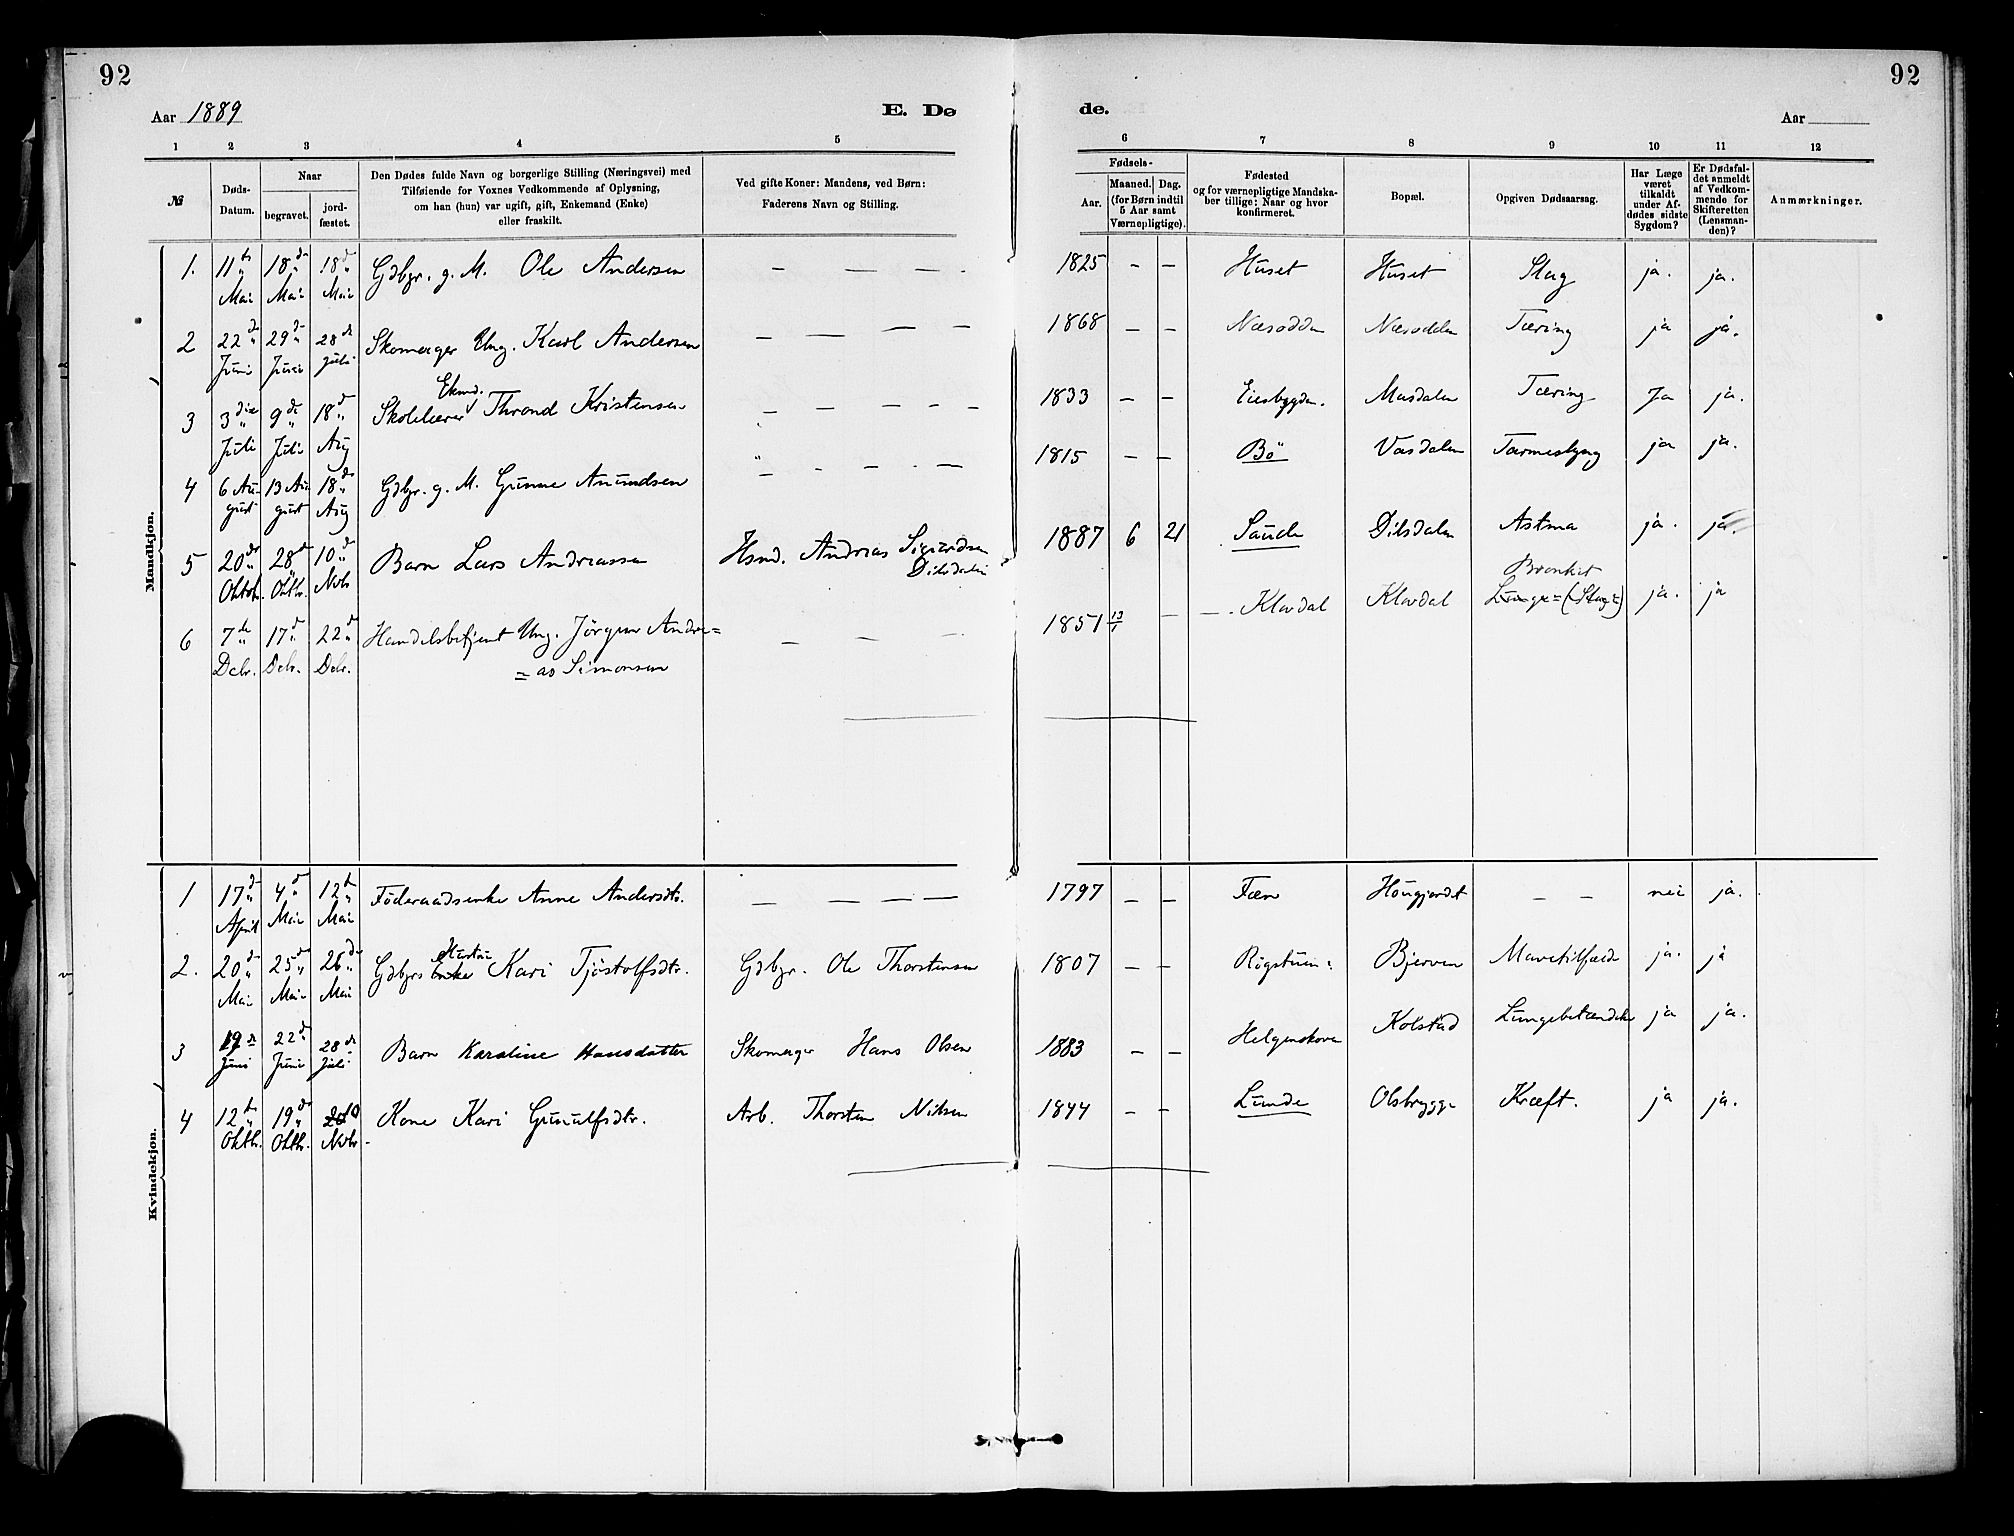 92
92
Aar 1889
E. Dø
de.
Aar
1 2 3 4 5 6 7 8 9 10 11 12
№
Døds-
Datum.
Naar
begravet.
jord-
fæstet.
Den Dødes fulde Navn og borgerlige Stilling (Næringsvei) med
Tilføiende for Voxnes Vedkommende af Oplysning,
om han (hun) var ugift, gift, Enkemand (Enke)
eller fraskilt.
Ved gifte Koner: Mandens, ved Børn:
Faderens Navn og Stilling.
Fødsels-
Aar.
Maaned. Dag.
(for Børn indtil
5 Aar samt
Værnepligtige).
Fødested
og for værnepligtige Mandska-
ber tillige: Naar og hvor
konfirmeret.
Bopæl.
Opgiven Dødsaarsag.
Har Læge
været
tilkaldt
under Af-
dødes sidste
Sygdom?
Er Dødsfal-
det anmeldt
af Vedkom-
mende for
Skifteretten
(Lensman-
den)?
Anmærkninger.
Mandkjøn.
1. 11te Mai 18de Mai 18de Mai Gdbgr. g. M. Ole Andersen — — — 1825 — — Huset Huset Slag ja. ja.
2 22de Juni 29de Juni 28de Juli Skomager Ung. Karl Andersen — — — — 1868 — — Næsodden Næsodden Tæring ja ja.
3 3die Juli 9de Juli 18de Aug Skolelærer Ekmd. Thrond Kristensen — — — — — 1833 — — Eiesbygden. Masdalen Tæring Ja ja.
4 6 August 13 August 18de Aug Gdbgr. g. M. Gunne Anundsen — — — — 1815 — — Bö Vasdalen Tarmeslyng ja ja.
5 20de Oktbr. 28de Oktbr. 10de Novbr Barn Lars Andreassen Hsmd. Andreas Sigurdsen Dilsdalen 1887 6 21 Saude Dilsdalen Astma ja. ja.
6 7de Decbr. 17de Decbr. 22de Decbr. Handelsbetjent Ung. Jörgen Andre=
=as Simonsen — — 1851 13/1 — — Klovdal Klovdal Bronkit Lunge=(Slag=) ja. ja
Kvindekjøn.
1 17de April 4de Mai 12te Mai Föderaadsenke Anne Andersdtr. — — — — 1797 — — Fæn Hougjordet — — nei ja.
2. 20de Mai 25de Mai 26de Mai Gdbgrs Enke Hustru Kari Tjöstolfsdtr. Gdbgr. Ole Thorstensen 1807 — — Bjerven Mavetilfælde ja. ja
3 19de Juni 22de Juni 28de Juli Barn Karoline Hansdatter Skomager Hans Olsen 1883 — — Helgenskoven Kolstad Lungebetændelse ja ja.
4 12te Oktbr. 19de Oktbr. 10 Novbr. Kone Kari Gunulfsdtr. Arb. Thorsten Nilsen 1844 — — Lunde Olsbrygge Kræft. ja ja.